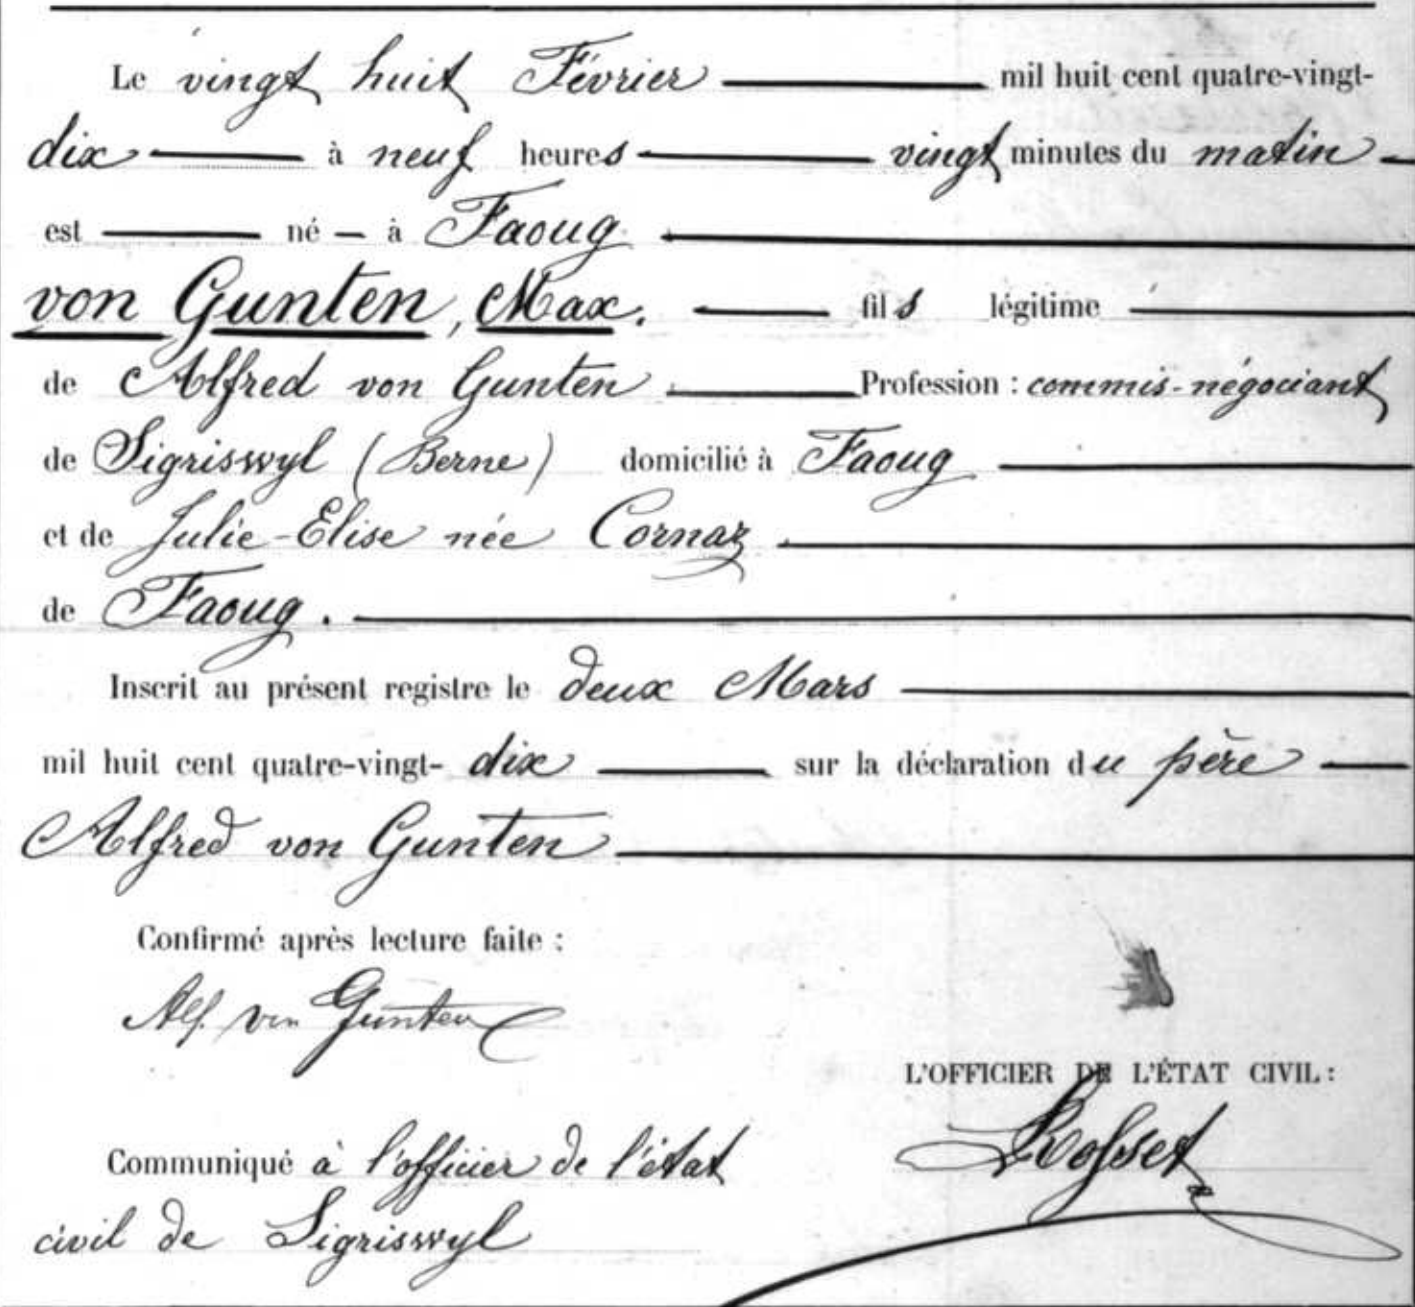 Le vingt huit Février mil huit cent quatre-vingt-
dix à neuf heures vingt minutes du matin
est né à Faoug
von Gunten, Max. fils légitime
de Alfred von Gunten Profession : commis-négociant
de Sigriswyl (Berne) domicilié à Faoug
et de Julie-Elise née Cornaz
de Faoug.
Inscrit au présent registre le deux Mars
mil huit cent quatre-vingt-dix sur la déclaration du père
Alfred von Gunten
Confirmé après lecture faite :
Alf. von Gunten
L'OFFICIER DE L'ÉTAT CIVIL :
Rosset
Communiqué à l'officier de l'état
civil de Sigriswyl